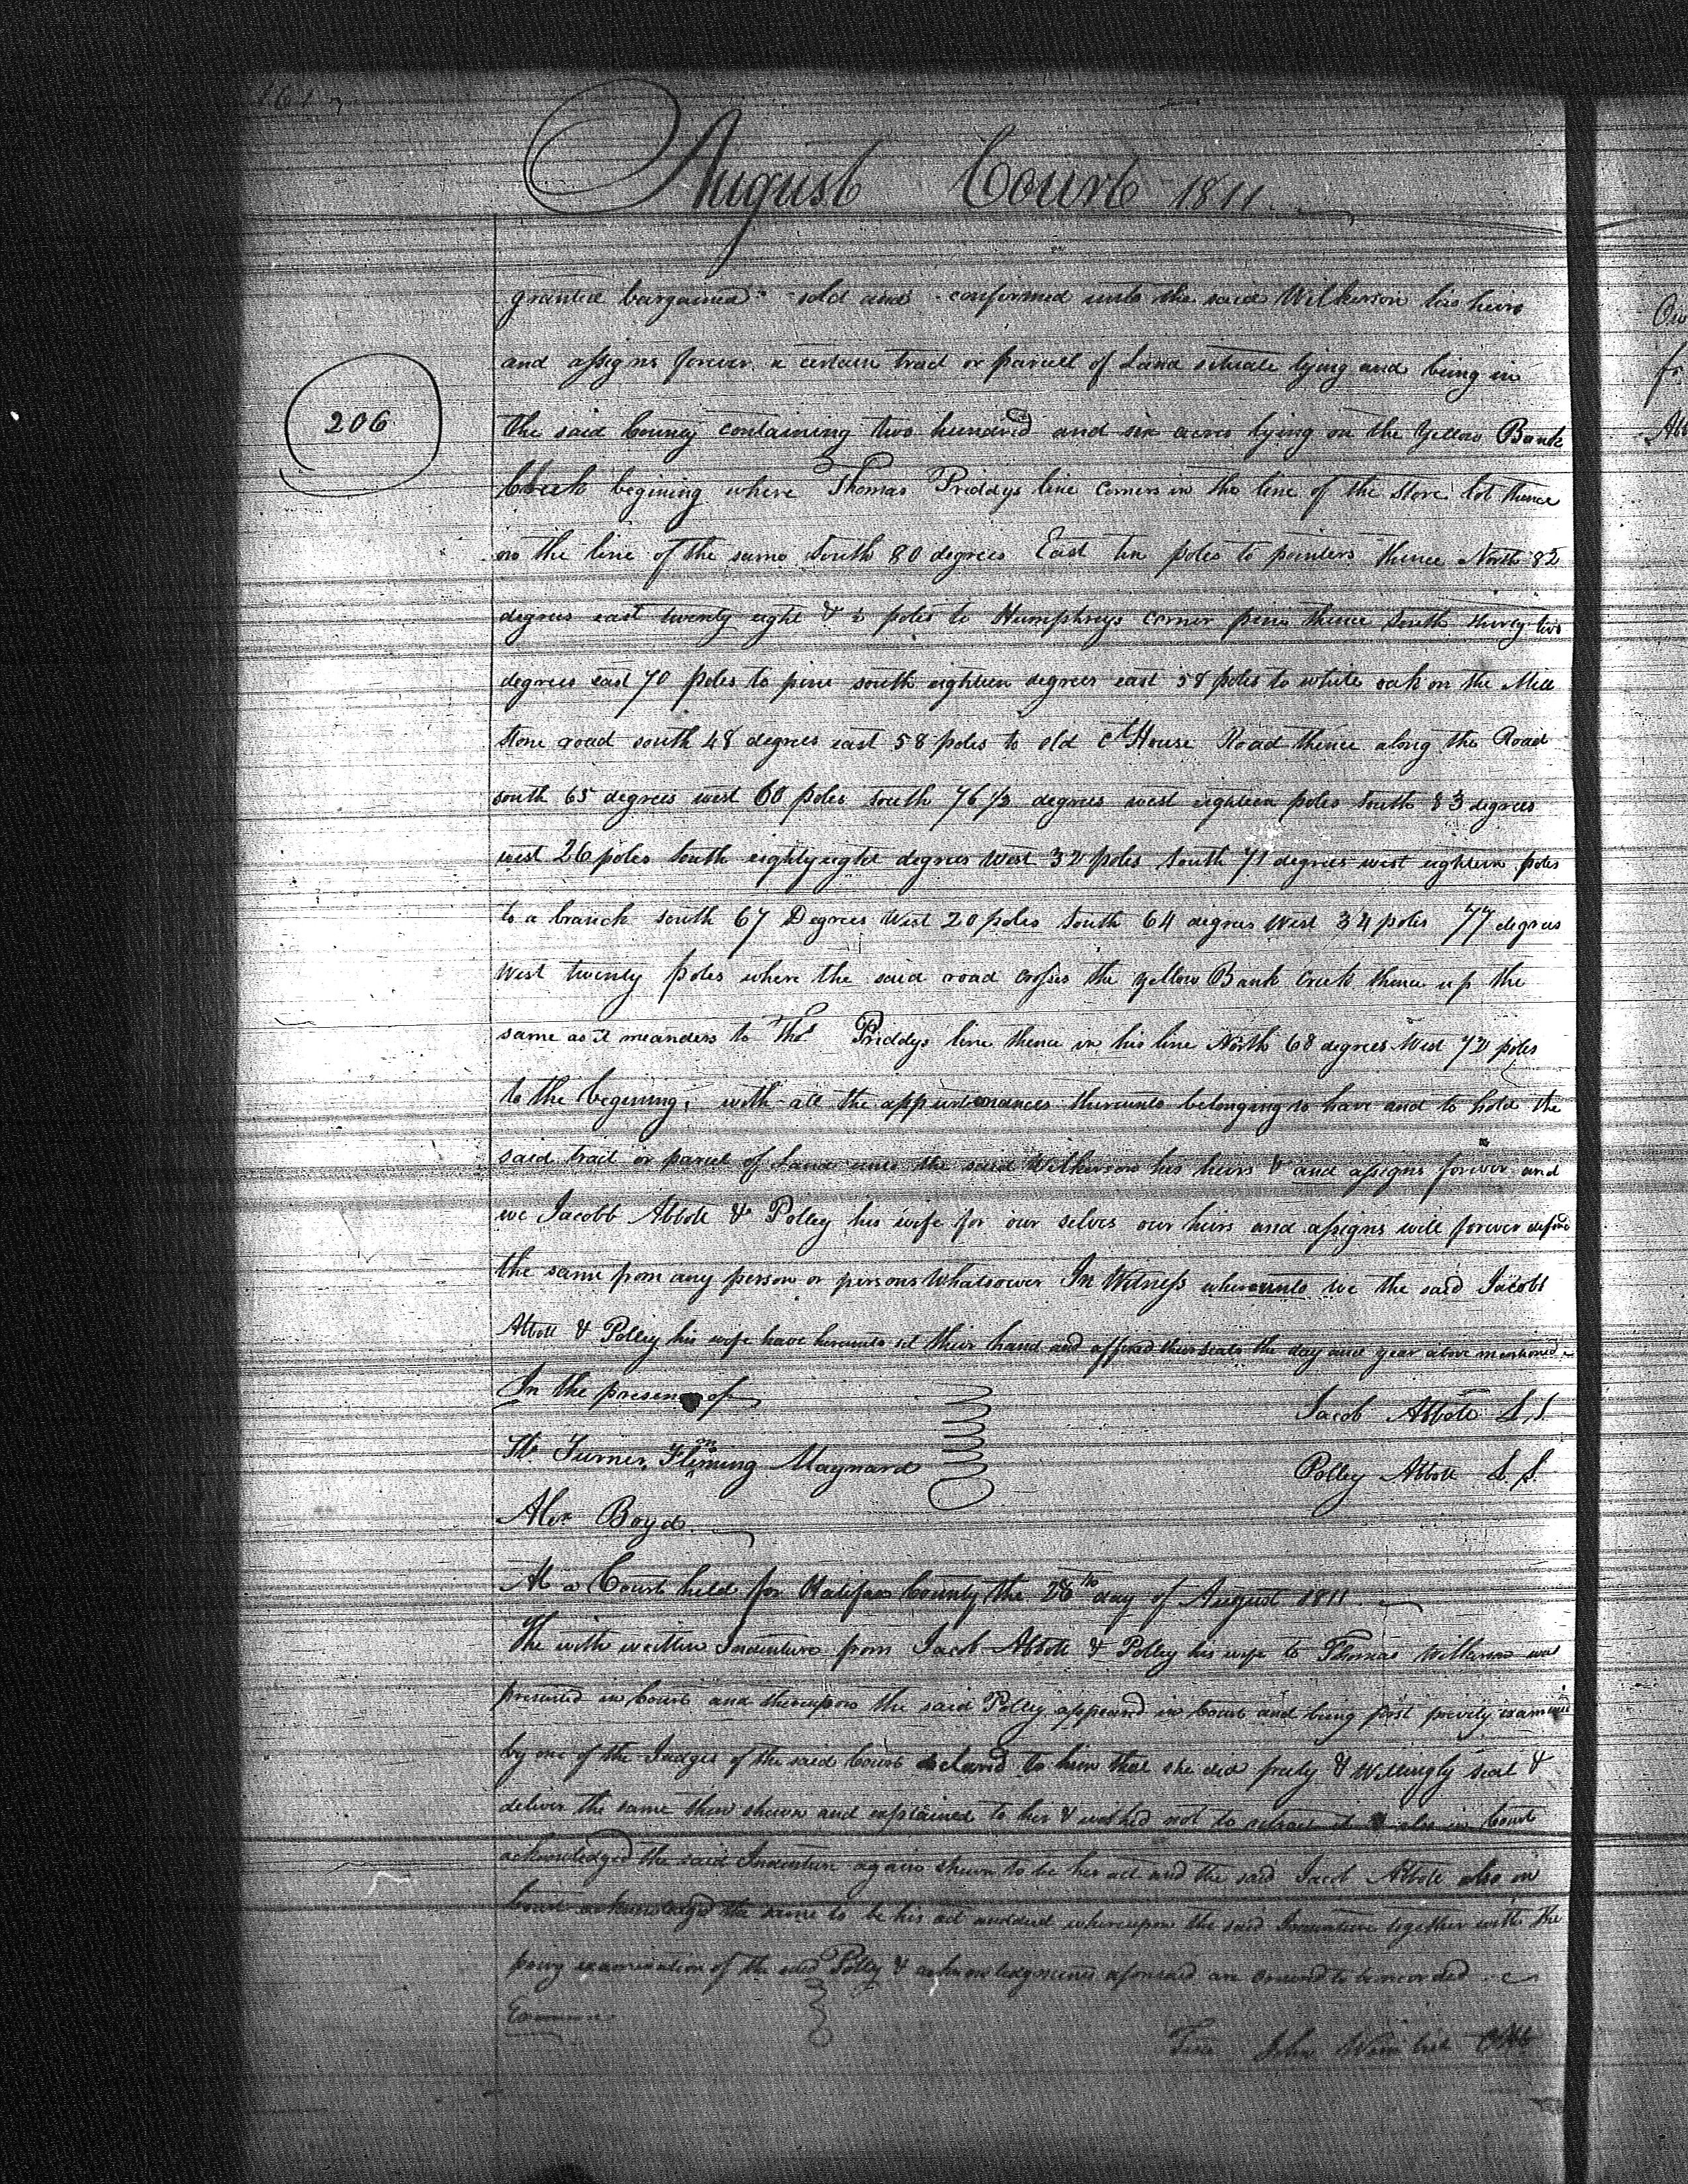 August Court 1811
granted bargained sold and confirmed unto the said Wilkerson his heirs
and assigns forever a certain tract or parcell of Land situate lying and being in
206
the said County containing two hundred and six acres lying on the Yellow Bank
Creek begining where Thomas Priddys line corners in the line of the Store lot thence
on the line of the same South 80 degrees East ten poles to pointers thence North 82
degrees east twenty eight & poles to Humphreys corner pine thence South thirty two
degrees east 70 poles to pine south eighteen degrees east 58 poles to white oak on the Mill
stone road south 48 degrees east 58 poles to old Ct House Road thence along the Road
south 65 degrees west 60 poles south 76 1/2 degrees west eighteen poles South 83 degrees
west 26 poles South eighty eight degrees West 32 poles South 71 degrees west eighteen poles
to a branch south 67 Degrees West 20 poles South 64 degrees West 34 poles 77 degrees
West twenty poles where the said road crosses the yellow Bank Creek thence up the
same as it meanders to Thos Priddys line thence in his line North 68 degrees West 72 poles
to the begining, with all the appurtenances thereunto belonging to have and to hold the
said tract or parcel of Land unto the said Wilkerson his heirs & and assigns forever and
we Jacobb Abbott & Polley his wife for our selves our heirs and assigns will forever defend
the same from any person or persons whatsoever In Witness whereunto we the said Jacob
Abbott & Polley his wife have hereunto set their hand and affixed their seals the day and year above mentioned
In the presence of
Jacob Abbott L.S.
Turner, Fleming Maynard
Polley Abbott L.S.
Alex Boyd
At a Court held for Halifax County the 26th day of August 1811
The with written Indenture from Jacob Abbott & Polley his wife to Thomas Wilkerson was
presented in Court and thereupon the said Polley appeared in Court and being first privily examined
by one of the Judges of the said Court declared to him that she did freely & Willingly seal &
deliver the same then shewn and explained to her & wished not to retract it & also in Court
acknowledged the said Indenture again shewn to be her act and the said Jacob Abbott also in
Court acknowledged the same to be his act and deed whereupon the said Indenture together with the
privy examination of the said Polley & acknowledgments aforesaid are ordered to be recorded
Teste John Wimbish